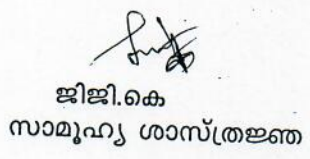 ജിജി.കെ
സാമൂഹ്യ ശാസ്ത്രജ്ഞ